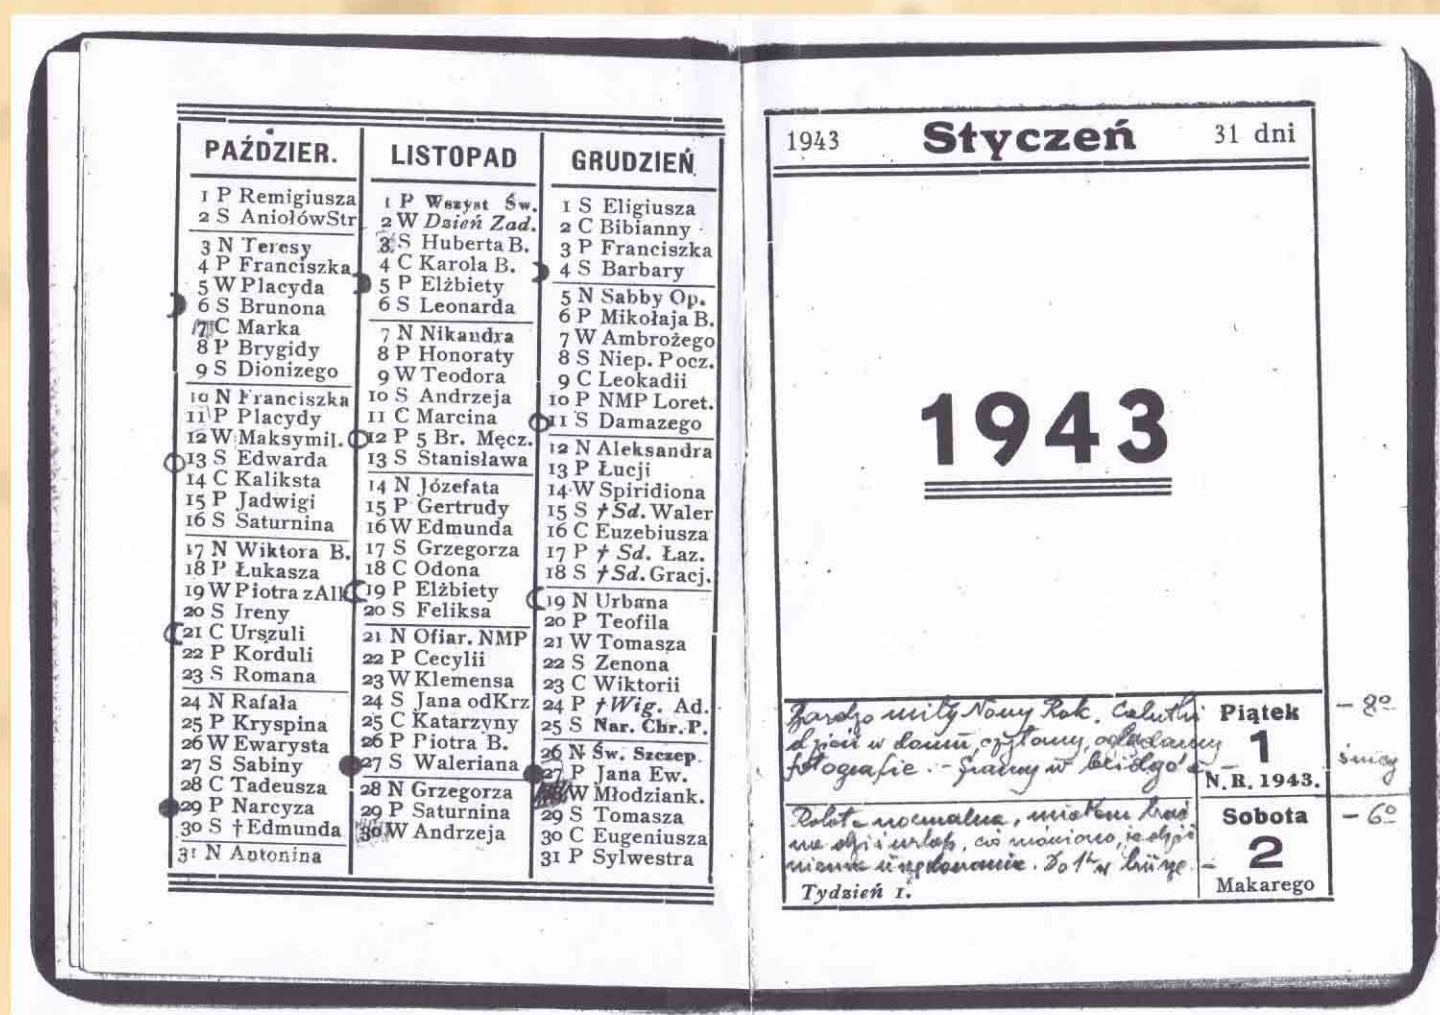 PAŹDZIER.
1 P Remigiusza
2 S AniołówStr
3 N Teresy
4 P Franciszka
5 W Placyda
6 S Brunona
7 C Marka
8 P Brygidy
9 S Dionizego
10 N Franciszka
11 P Placydy
12 W Maksymil.
13 S Edwarda
14 C Kaliksta
15 P Jadwigi
16 S Saturnina
17 N Wiktora B.
18 P Łukasza
19 W Piotra z Alk
20 S Ireny
21 C Urszuli
22 P Korduli
23 S Romana
24 N Rafała
25 P Kryspina
26 W Ewarysta
27 S Sabiny
28 C Tadeusza
29 P Narcyza
30 S † Edmunda
31 N Antonina
LISTOPAD
1 P Wszyst Św.
2 W Dzień Zad.
3 S Huberta B.
4 C Karola B.
5 P Elżbiety
6 S Leonarda
7 N Nikandra
8 P Honoraty
9 W Teodora
10 S Andrzeja
11 C Marcina
12 P 5 Br. Męcz.
13 S Stanisława
14 N Józefata
15 P Gertrudy
16 W Edmunda
17 S Grzegorza
18 C Odona
19 P Elżbiety
20 S Feliksa
21 N Ofiar. NMP
22 P Cecylii
23 W Klemensa
24 S Jana odKrz
25 C Katarzyny
26 P Piotra B.
27 S Waleriana
28 N Grzegorza
29 P Saturnina
30 W Andrzeja
GRUDZIEŃ
1 S Eligiusza
2 C Bibianny
3 P Franciszka
4 S Barbary
5 N Sabby Op.
6 P Mikołaja B.
7 W Ambrożego
8 S Niep. Pocz.
9 C Leokadii
10 P NMP Loret.
11 S Damazego
12 N Aleksandra
13 P Łucji
14 W Spiridiona
15 S † Sd. Waler
16 C Euzebiusza
17 P † Sd. Łaz.
18 S † Sd. Gracj.
19 N Urbana
20 P Teofila
21 W Tomasza
22 S Zenona
23 C Wiktorii
24 P † Wig. Ad.
25 S Nar. Chr. P.
26 N Św. Szczep.
27 P Jana Ew.
W Młodziank.
29 S Tomasza
30 C Eugeniusza
31 P Sylwestra
1943 Styczeń 31 dni
1943
Bardzo miły Nowy Rok. Calutki
dzień w domu, czytamy, oglądamy
fotografie. - Gramy w bridge'a
Piątek
1
N. R. 1943.
- 8º
śnieg
Robota normalna, miałem
na dziś urlop, coś mówiono,
Tydzień 1.
Sobota
2
Makarego
- 6º